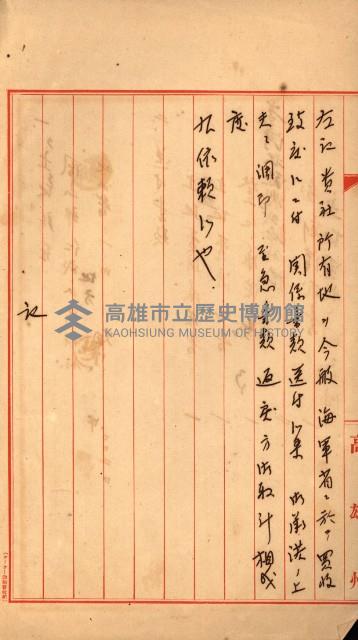 左記貴社所有地ヲ今般海軍省ニ於テ買收
致度ニ付関係書類送付候条御承諾ノ上
夫々調印至急書類返戻方御取計相成
度
此依頼候也
記
高雄州
高雄市立歷史博物館
KAOHSIUNG MUSEUM OF HISTORY